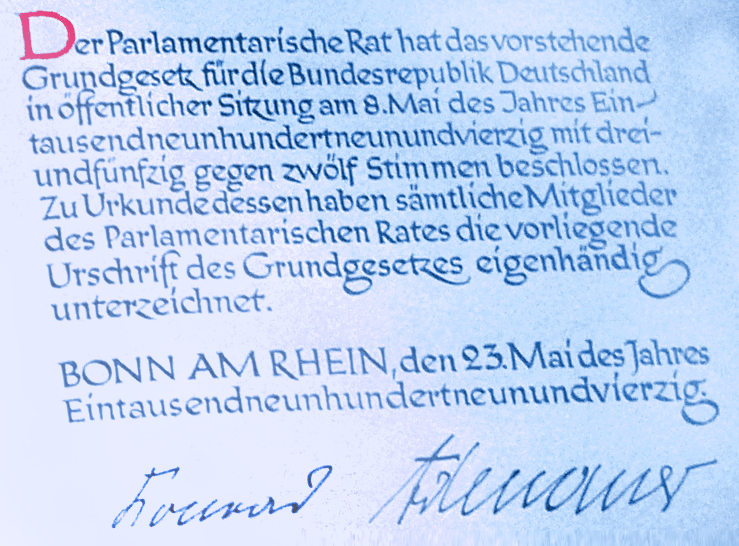 Der Parlamentarische Rat hat das vorstehende
Grundgesetz für die Bundesrepublik Deutschland
in öffentlicher Sitzung am 8. Mai des Jahres Ein-
tausendneunhundertneunundvierzig mit drei-
undfünfzig gegen zwölf Stimmen beschlossen.
Zu Urkunde dessen haben sämtliche Mitglieder
des Parlamentarischen Rates die vorliegende
Urschrift des Grundgesetzes eigenhändig
unterzeichnet.
BONN AM RHEIN, den 23. Mai des Jahres
Eintausendneunhundertneunundvierzig.
Konrad Adenauer